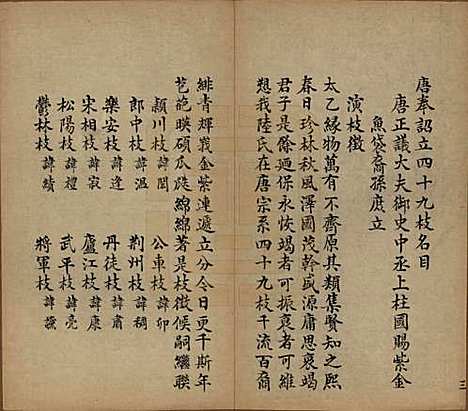 唐奉詔立四十九枝名目
唐正議大夫御史中丞上柱國賜紫金
魚袋裔孫庶立
演枝徵
太乙緣物萬有不齊原其類集賢知之熙
春日珍林秋風澤國茂幹盛源庸思衰竭
君子是條廼保永恢竭者可振衰者可維
想我陸氏在唐宗系四十九枝千流百裔
緋青輝義金紫連遞立分今日更千斯年
芑葩暎碩瓜瓞綿綿著是枝徵候嗣繼聯
潁川枝 諱閎 公車枝 諱卯
郎中枝 諱溫 荆州枝 諱稠
樂安枝 諱逢 丹徒枝 諱肅
宋相枝 諱寂 廬江枝 諱康
松陽枝 諱禮 武平枝 諱亮
鬱林枝 諱績 將軍枝 諱議
三